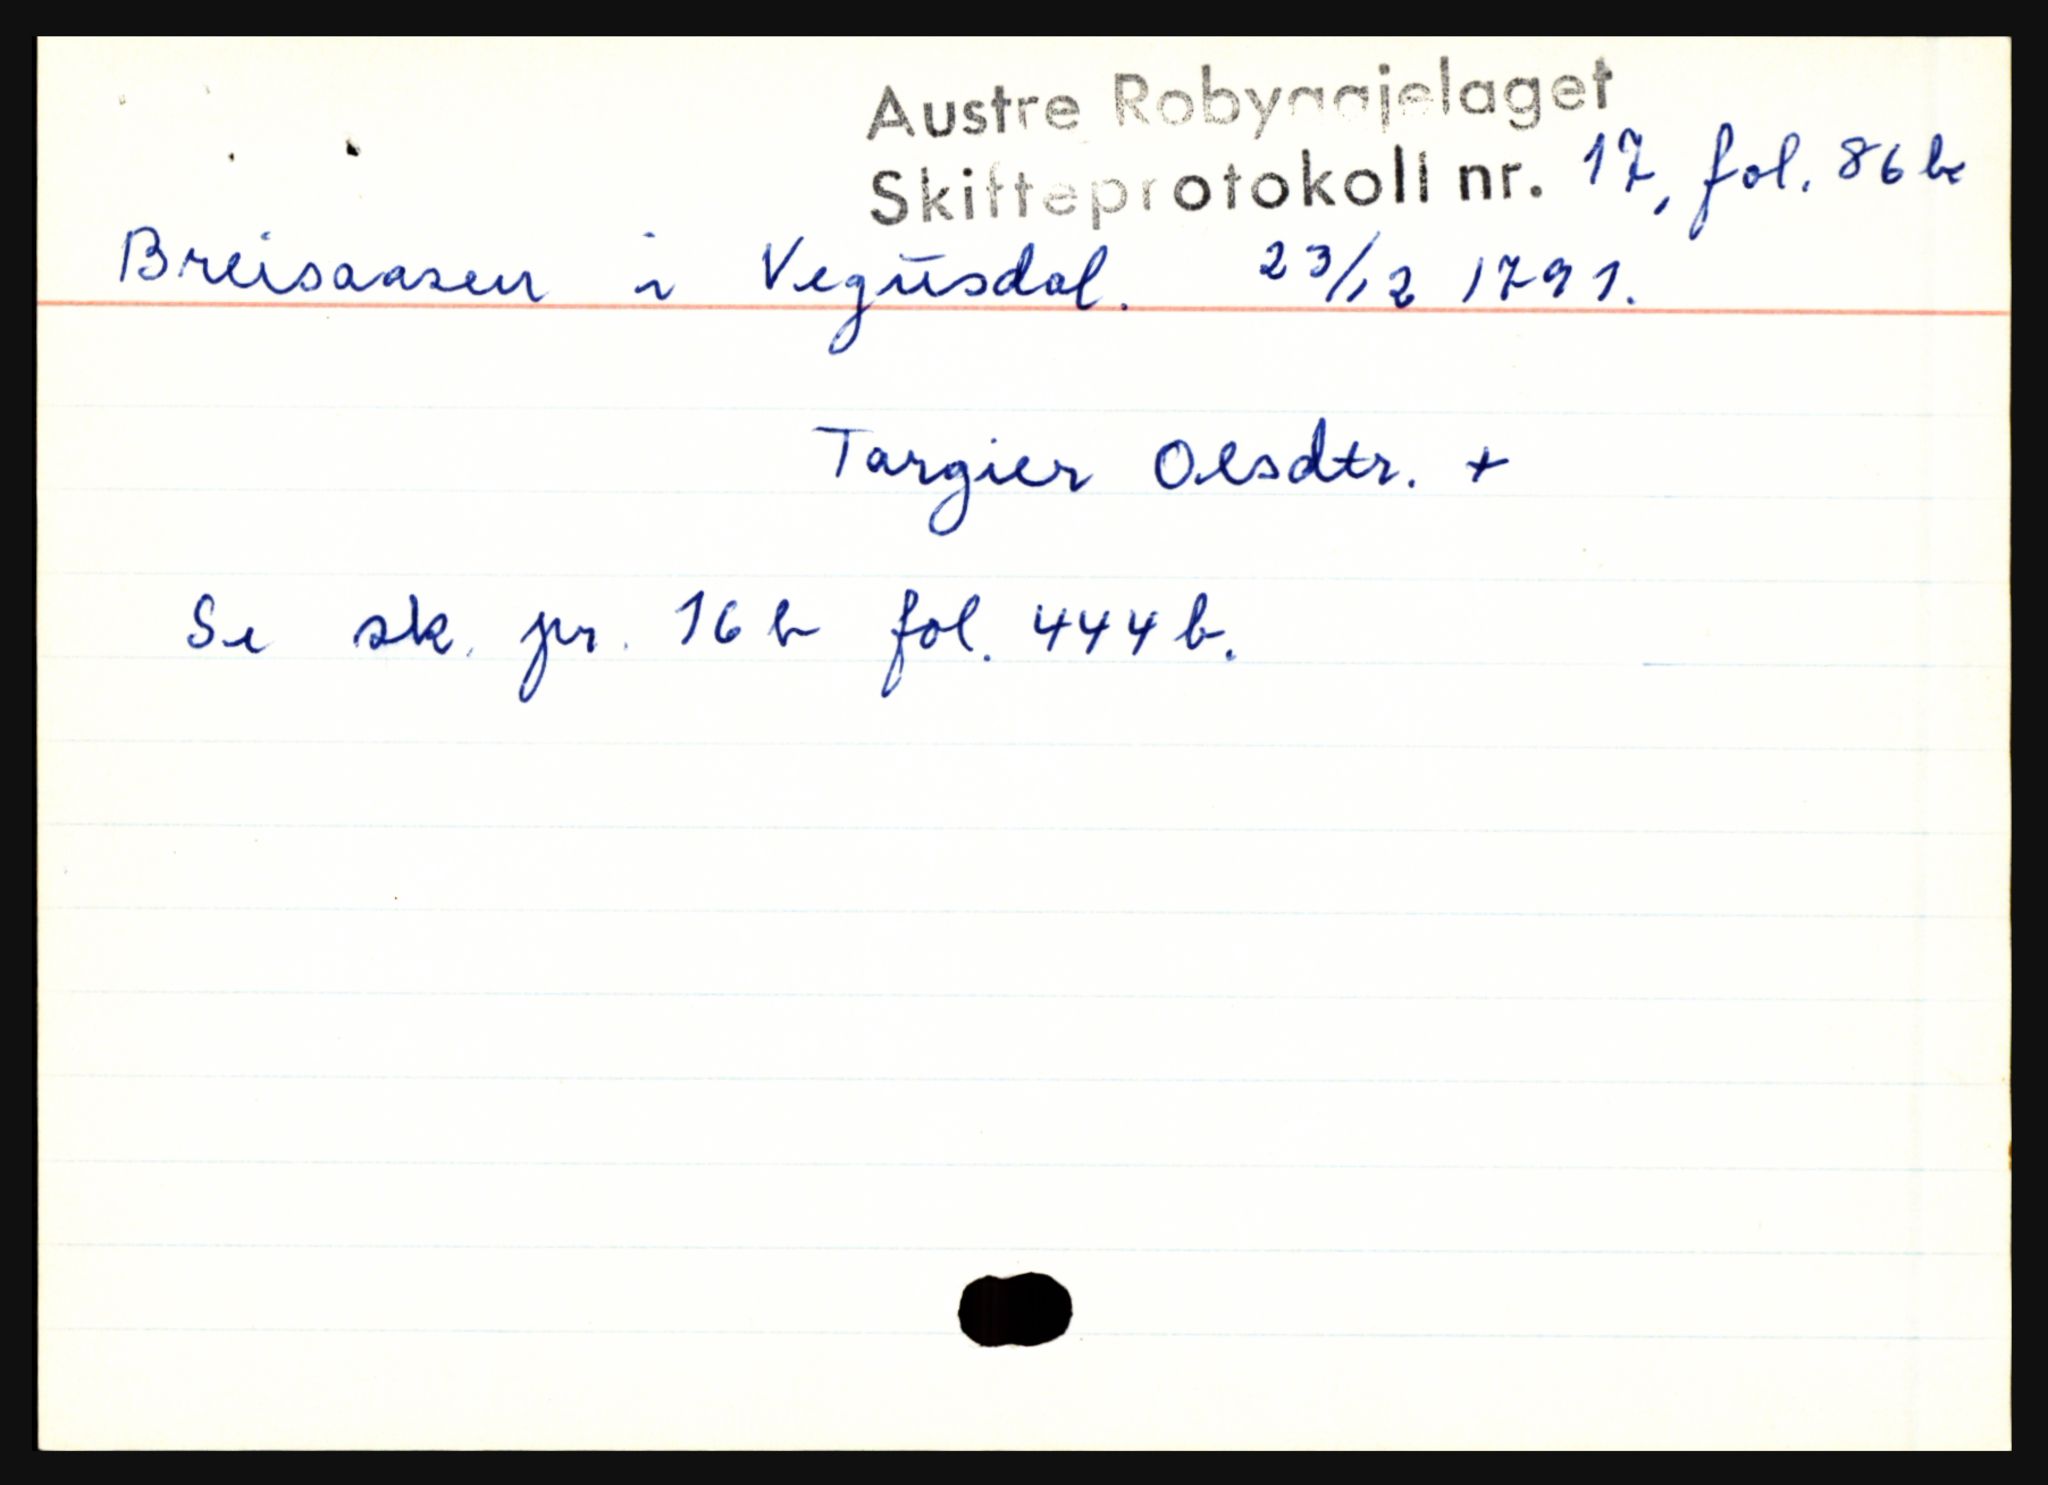 Austre Robyggjelaget
Skifteprotokoll nr. 17, fol. 86 b
Breisaasen i Vegusdal. 23/12 1791.
Targier Olsdtr. +
Se sk. pr. 16 b fol. 444 b.